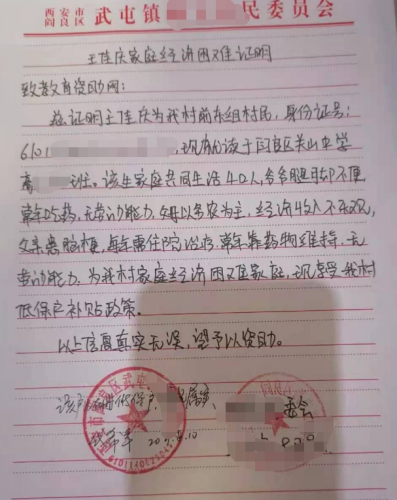 西安市
阎良区 武屯镇 民委员会
王佳庆家庭经济困难证明
致教育资助网：
兹证明王佳庆为我村前东组村民，身份证号：
6101 ，现就读于阎良区关山中学
高 班。该生家庭共同生活4口人，爷爷腿脚不便
常年吃药，无劳动能力，母以务农为主，经济收入不乐观，
父亲患脑梗，每年需住院治疗，常年靠药物维持，无
劳动能力，为我村家庭经济困难家庭，现享受我村
低保户补贴政策。
以上信息真实无误，望予以资助。
该户 低保户， 属实 委会